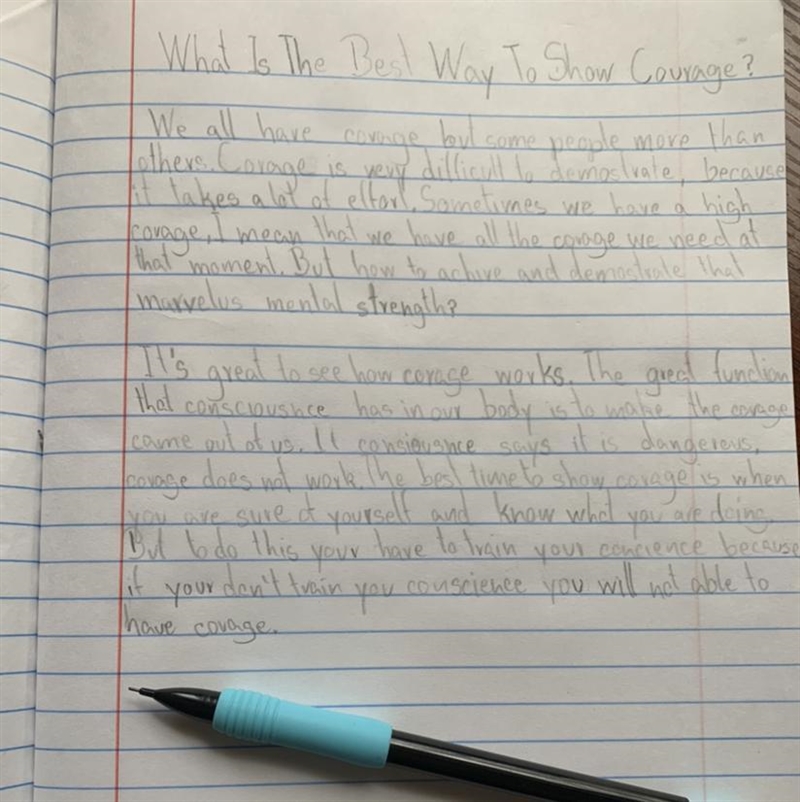 What Is The Best Way To Show Courage?
We all have corage but some people more than
others. Corage is very difficult to demostrate, because
it takes a lot of effort. Sometimes we have a high
corage, I mean that we have all the corage we need at
that moment. But how to achive and demostrate that
marvelus mental strength?
It's great to see how corage works. The great function
that consciousnce has in our body is to make the corage
came out of us. If consiousnce says it is dangereus,
corage does not work. The best time to show corage is when
you are sure of yourself and know what you are doing.
But to do this your have to train your concience because
if your don't train you conscience you will not able to
have corage.